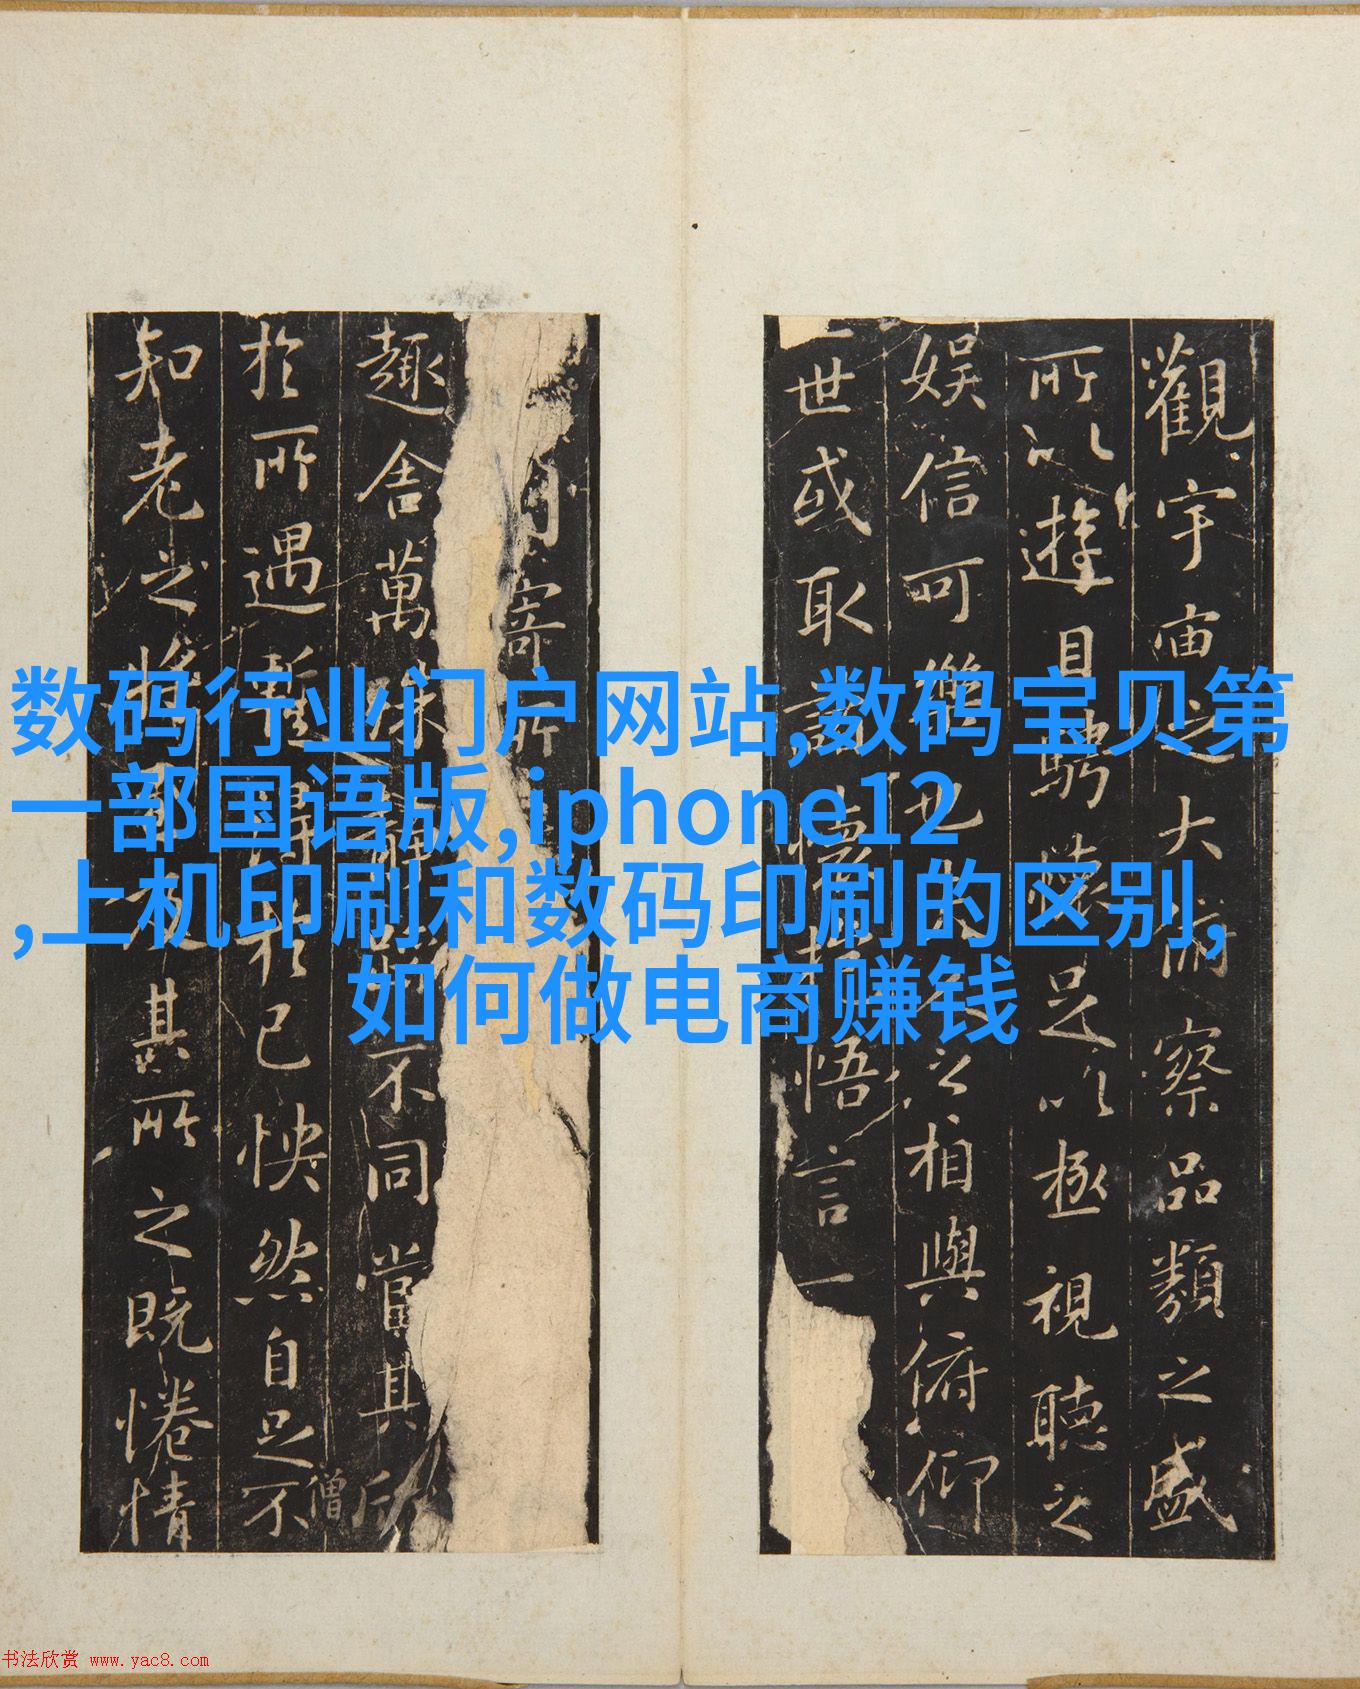 觀宇宙之大俯察品類之盛
所以遊目騁懷足以極視聽之
娛信可樂也夫人之相與俯仰
世或取諸懷抱悟言一
寄所
趣舍萬殊靜躁不同當其欣
僧
於所遇暫得於己怏然自足不
知老之將至及其所之既惓情
数码行业门户网站,数码宝贝第
一部国语版,iphone12
,上机印刷和数码印刷的区别,
如何做电商赚钱
书法欣赏 www.yac8.com